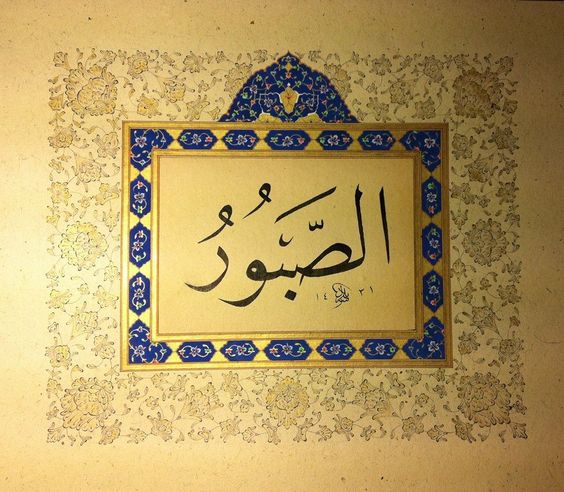 الصَّبُورُ
١٤٣١